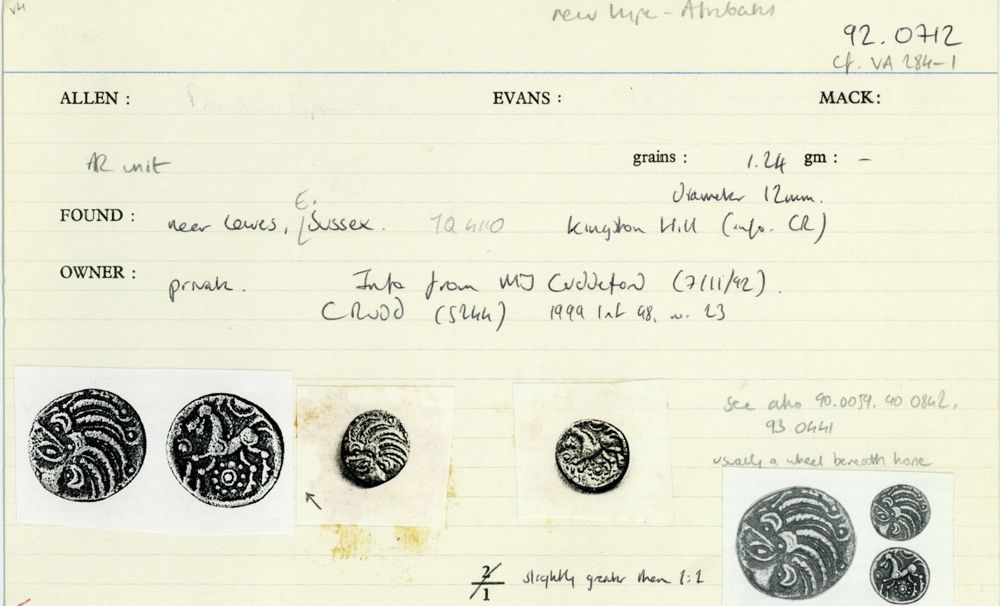 VH
new type - Atrebatic
92.0712
cf. VA 284-1
ALLEN :
EVANS :
MACK:
AR unit
grains : 1.24 gm : -
Diameter 12mm.
FOUND : near Lewes, E. Sussex. TQ 4110 Kingston Hill (info. CR)
OWNER : private. Info from MJ Cuddeford (7/11/92).
CRUDD (5244) 1999 list 48. no. 23
see also 90.0059, 90.0842,
93.0441
usually a wheel beneath horse
2/1 slightly greater than 1:1